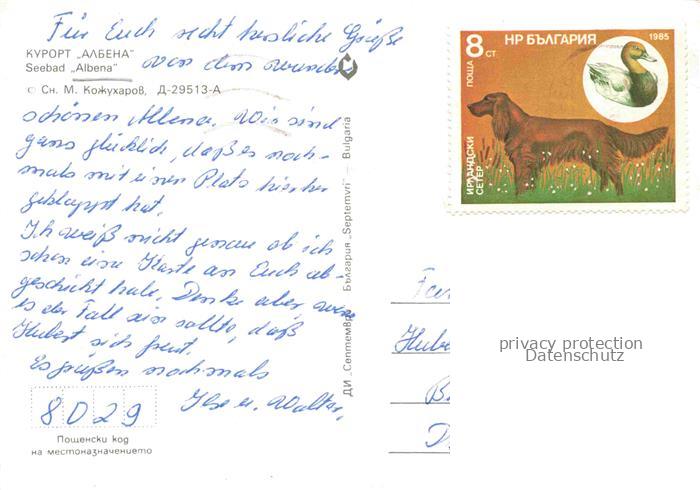 Für Euch recht herzliche Grüße
КУРОРТ „АЛБЕНА“
Seebad „Albena“
von dem wunder
© Сн. М. Кожухаров, Д-29513-А
schönen Albena. Wir sind
ganz glücklich, daß es noch-
mals mit einen Platz hierher
geklappt hat.
Ich weiß nicht genau ob ich
schon eine Karte an Euch ab-
geschickt habe. Denke aber, wenn
es der Fall sein sollte, daß
Hubert sich freut.
Es grüßen nochmals
Ilse u. Walter.
8029
Пощенски код
на местоназначението
ДИ „Септември“ — България „Septemvri“ — Bulgaria
8 СТ
ПОЩА
НР БЪЛГАРИЯ
1985
ИРЛАНДСКИ
СЕТЕР
Fam
Hube
B
D
privacy protection
Datenschutz